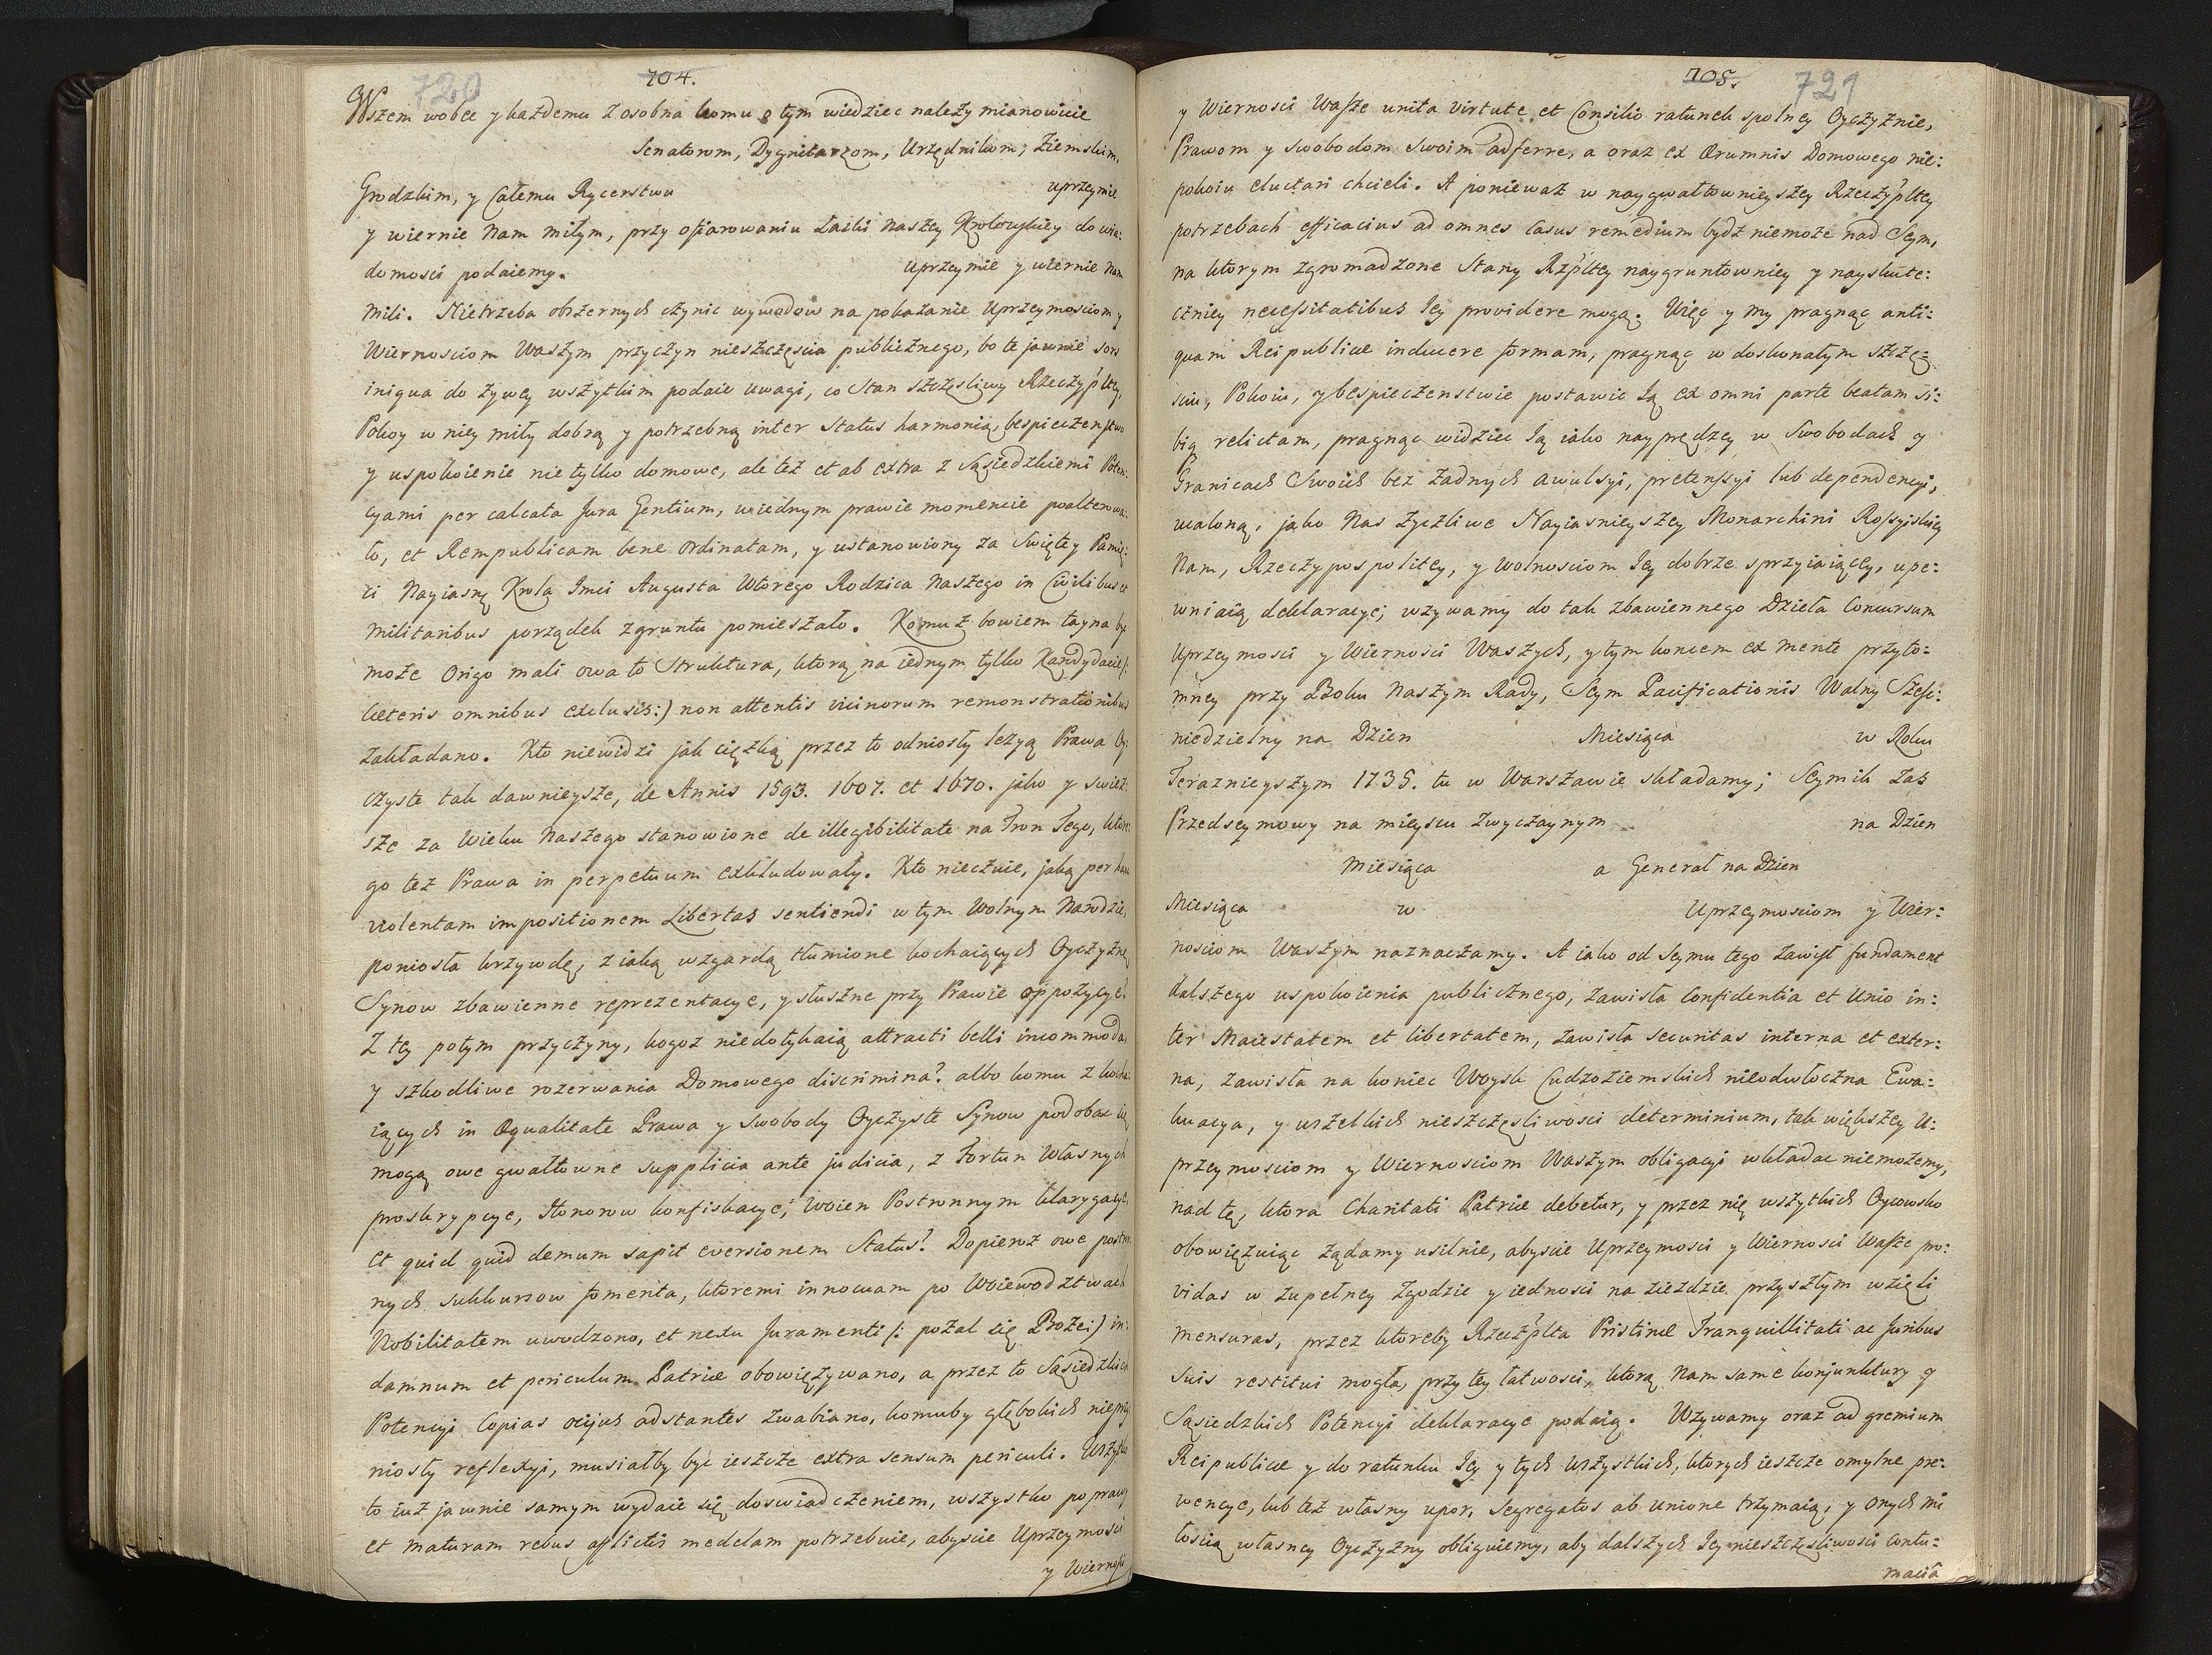 720 704.
Wszem wobec y każdemu z osobna komu o tym wiedziec należy mianowicie
Senatorom, Dygnitarzom, Urzędnikom, Ziemskim,
Grodzkim, y Całemu Rycerstwu uprzeymie
y wiernie Nam miłym, przy ofiarowaniu Łaski Naszey Krolewskiey do wia:
domosci podaiemy. Uprzeymie y wiernie Nam
Mili. Nietrzeba obszernych czynic wywodow na pokazanie Uprzeymosciom y
Wiernosciom Waszym przyczyn nieszczęscia publicznego, bo te jawnie sors
iniqua do żywey wszytkim podaie uwagi, co Stan szczęsliwy Rzeczypltey,
Pokoy w niey miły dobrą y potrzebną inter Status harmonią, bespieczenstwo
y uspokoienie nie tylko domowe, ale też et ab extra z Sąsiedzkiemi Poten:
cyami per calcata Jura Gentium, w iednym prawie momencie poalterowa:
ło, et Rempublicam bene ordinatam, y ustanowiony za Swiętey Pamię:
ci Nayiasnę Krola Jmci Augusta Wtorego Rodzica Naszego in Civilibus et
Militaribus porządek z gruntu pomieszało. Komuż bowiem tayna byc
może Origo mali owa to Struktura, ktorą na iednym tylko Kandydacie /:
caeteris omnibus exclusis:) non attentis vicinorum remonstrationibus
zakładano. Kto niewidzi jak cięzką przez to odniosły lezyą Prawa Oy:
czyste tak dawnieysze, de Annis 1593. 1607. et 1670. jako y swież:
sze za Wieku Naszego stanowione de illegibilitate na Tron Tego, ktore:
go też Prawa in perpetuum exkludowały. Kto nieczuie, jaką per hanc
violentam impositionem Libertas sentiendi w tym Wolnym Narodzie,
poniosła krzywdę, z iaką wzgardą tłumione kochaiących Oyczyznę
Synow zbawienne reprezentacye, y słuszne przy Prawie oppozycye?
Z tey potym przyczyny, kogoż niedotykaią attracti belli incommoda,
y szkodliwe rozerwania Domowego discrimina? albo komu z kocha:
iących in Aequalitate Prawa y Swobody Oyczyste Synow podobac się
mogą owe gwałtowne supplicia ante judicia, z Fortun Własnych
proskrypcye, Honorow konfiskacye, Woien Postronnym klarygacye,
et quid quid demum sapit eversionem Status? Dopieroż owe postron:
nych sukkursow fomenta, ktoremi innocuam po Woiewodztwach
Nobilitatem uwodzono, et nexu Juramenti /: pożal się Boże:) in
damnum et periculum Patriae obowięzywano, a przez to Sąsiedzkich
Potencyi Copias ocijus adstantes zwabiano, komuby głębokich nieprzy:
niosły reflexyi, musiałby byc ieszcze extra sensum periculi. Wszystko
to iuż jawnie samym wydaie się doswiadczeniem, wszystko poprawy
et maturam rebus afflictis medelam potrzebuie, abyscie Uprzeymosci
y Wiernosci
705. 721
y Wiernosci Wasze unita virtute et Consilio ratunek spolney Oyczyznie,
Prawom y Swobodom Swoim adferre, a oraz ex Ærumnis Domowego nie:
pokoiu eluctari chcieli. A poniewaz w naygwałtownieyszey Rzeczypltey
potrzebach efficacius ad omnes casus remedium bydz niemoże nad Seym,
na ktorym zgromadzone Stany Rzpltey naygruntowniey y nayskute:
czniey necessitatibus Jey providere mogą. Więc y My pragnąc anti:
quam Reipublicae inducere formam, pragnąc w doskonałym szczę:
sciu, Pokoiu, y bespieczenstwie postawic Ją ex omni parte beatam si:
bią relictam, pragnąc widziec Ją iako nayprędzey w Swobodach y
Granicach Swoich bez żadnych awulsyi, pretensyi lub dependencyi,
ucaloną, jako Nas życzliwe Nayiasnieyszey Monarchini Rossyiskiey
Nam, Rzeczypospolitey, y wolnosciom Jey dobrze sprzyiaiącey, upe:
wniaią deklaracye; wzywamy do tak zbawiennego Dzieła Concursum
Uprzeymosci y Wiernosci Waszych, y tym koncem ex mente przyto:
mney przy Boku Naszym Rady, Seym Pacificationis Walny Szesc:
niedzielny na Dzien Miesiąca w Roku
Teraznieyszym 1735. tu w Warszawie składamy; Seymik zas
Przedseymowy na mieyscu zwyczaynym na Dzien
Miesiąca a Generał na Dzien
Miesiąca w Uprzeymosciom y Wier:
nosciom Waszym naznaczamy. A iako od Seymu tego zawisł fundament
dalszego uspokoienia publicznego, zawisła Confidentia et Unio in:
ter Maiestatem et libertatem, zawisła securitas interna et exter:
na, zawisła na koniec Woysk Cudzoziemskich nieodwłoczna Ewa:
kuacya, y wszelkich nieszczęsliwosci determinium, tak większey U:
przeymosciom y Wiernosciom Waszym obligacyi wkładac niemożemy,
nad tę, ktora Charitati Patriae debetur, y przez nię wszytkich Oycowsko
obowięzuiąc żądamy usilnie, abyscie Uprzeymosci y Wiernosci Wasze pro:
vidas w zupełney Zgodzie y iednosci na ziezdzie przyszłym wzięli
mensuras, przez ktoreby Rzeczplta Pristinae Tranquillitati ac Juribus
Suis restitui mogła, przy tey łatwosci, ktorą Nam same konjunktury y
Sąsiedzkich Potencyi deklaracye podaią. Wzywamy oraz ad gremium
Reipublicae y do ratunku Jey y tych wszystkich, ktorych ieszcze omylne pre:
wencye, lub też własny upor, segregatos ab unione trzymaią, y onych mi
łoscią własney Oyczyzny obliguiemy, aby dalszych Jey nieszczęsliwosci contu:
maciâ